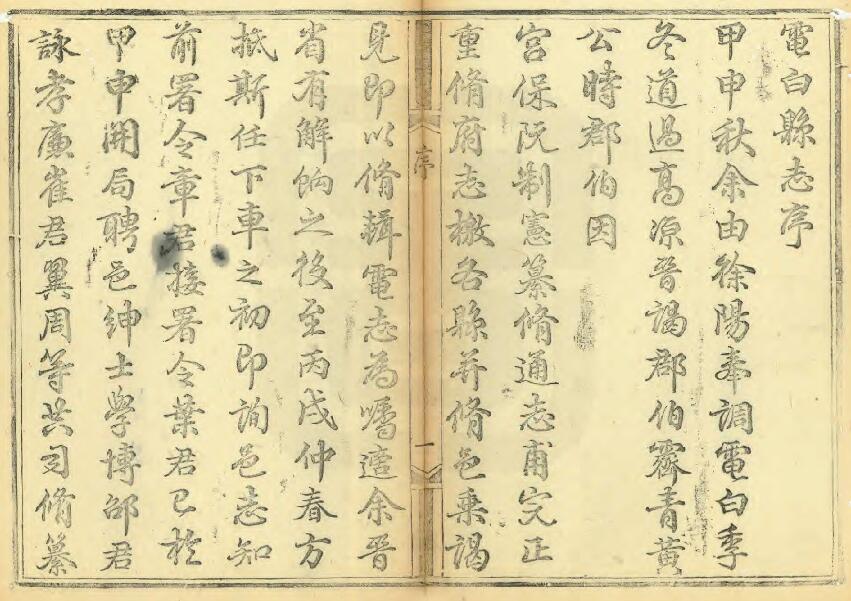 電白縣志序
甲申秋余由徐陽奉調電白季
冬道過高凉晉謁郡伯霽青黃
公時郡伯因
宮保阮制憲纂脩通志甫完正
重脩府志檄各縣并脩邑乗謁
序
一
見即以脩輯電志為囑適余晉
省有解餉之後至丙戌仲春方
抵斯任下車之初即詢邑志知
前署令章君接署令葉君已於
甲申開局聘邑紳士學博邵君
詠孝廉崔君翼周等共司脩纂